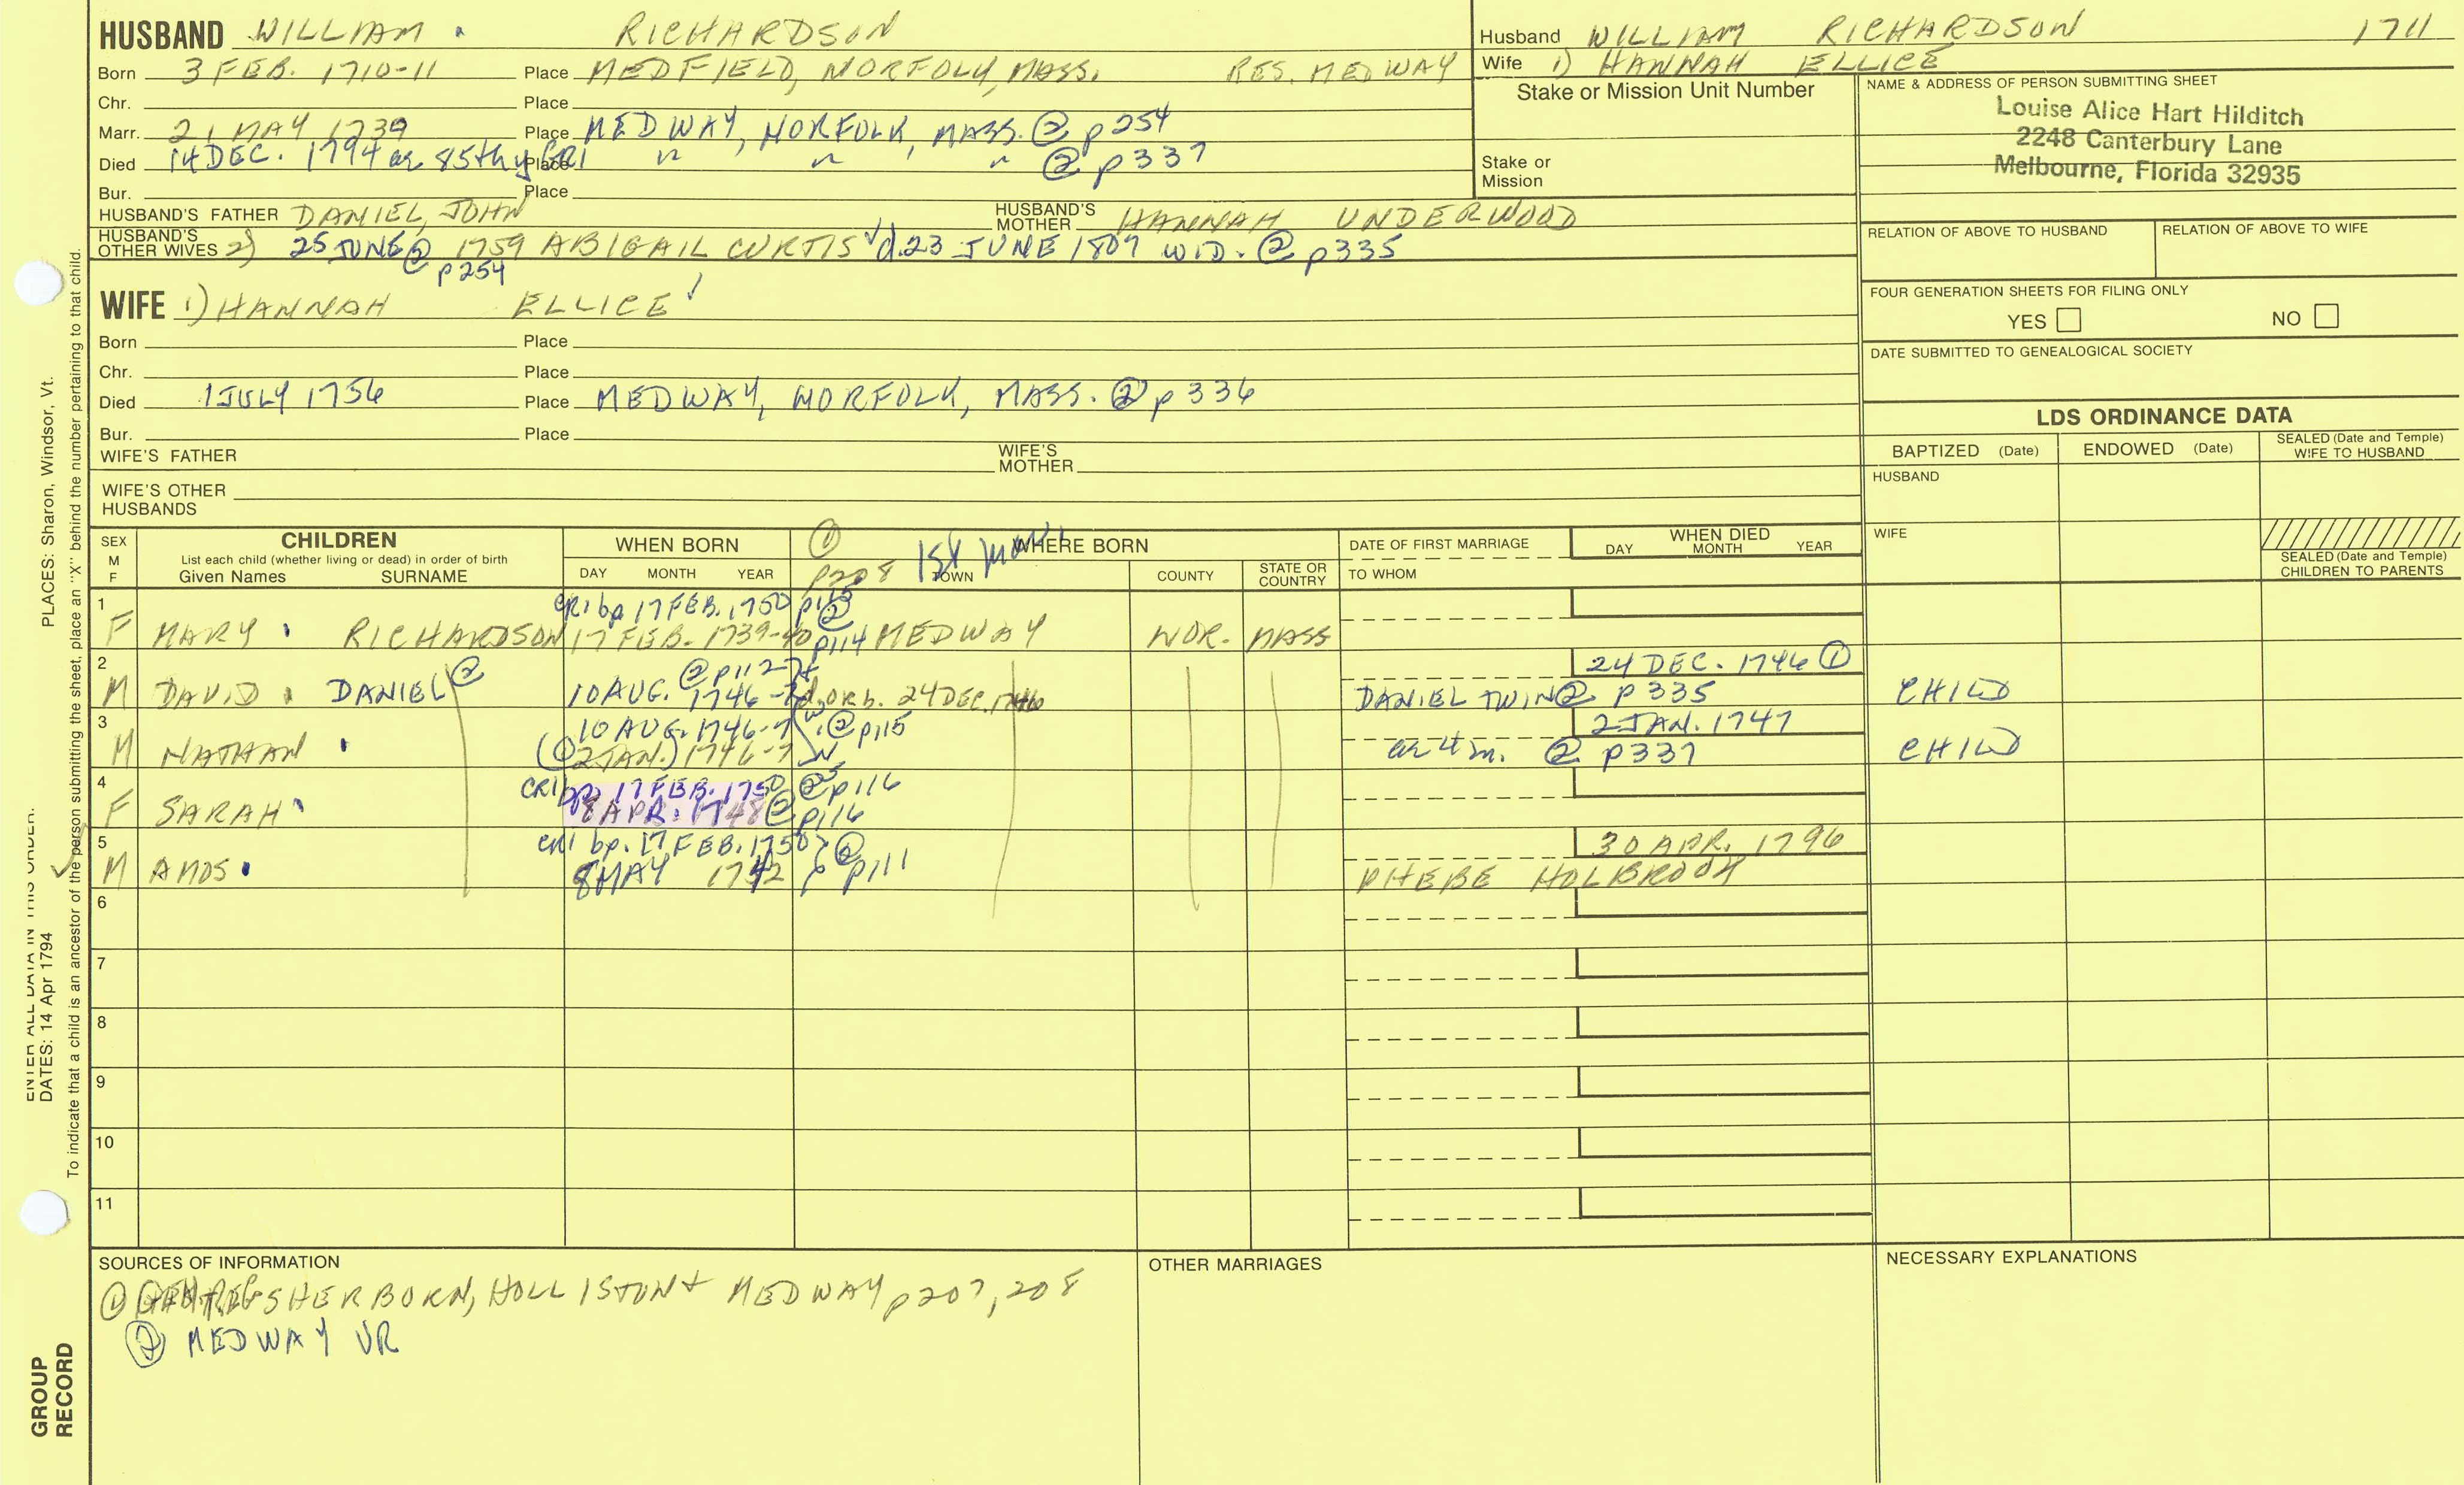 HUSBAND WILLIAM RICHARDSON
Born 3 FEB. 1710-11 Place MEDFIELD, NORFOLK, MASS. RES. MEDWAY
Chr. Place
Marr. 21 MAY 1739 Place MEDWAY, NORFOLK, MASS. ② p254
Died 14 DEC. 1794 ae 85thy CR1 Place " " " ② p337
Bur. Place
HUSBAND'S FATHER DANIEL, JOHN HUSBAND'S MOTHER HANNAH UNDERWOOD
HUSBAND'S OTHER WIVES 2) 25 JUNE ② 1759 ABIGAIL CURTIS √ d. 23 JUNE 1807 WID. ② p335
p254
WIFE 1) HANNAH ELLICE
Born Place
Chr. Place
Died 1 JULY 1756 Place MEDWAY, NORFOLK, MASS. ② p 336
Bur. Place
WIFE'S FATHER WIFE'S MOTHER
WIFE'S OTHER HUSBANDS
Husband WILLIAM RICHARDSON 1711
Wife 1) HANNAH ELLICE
Stake or Mission Unit Number
Stake or Mission
NAME & ADDRESS OF PERSON SUBMITTING SHEET
Louise Alice Hart Hilditch
2248 Canterbury Lane
Melbourne, Florida 32935
RELATION OF ABOVE TO HUSBAND RELATION OF ABOVE TO WIFE
FOUR GENERATION SHEETS FOR FILING ONLY
YES NO
DATE SUBMITTED TO GENEALOGICAL SOCIETY
LDS ORDINANCE DATA
BAPTIZED (Date) ENDOWED (Date) SEALED (Date and Temple) WIFE TO HUSBAND
HUSBAND
WIFE
SEALED (Date and Temple) CHILDREN TO PARENTS
SEX M F
CHILDREN
List each child (whether living or dead) in order of birth
Given Names SURNAME
WHEN BORN
DAY MONTH YEAR
① p208 1st
WHERE BORN
TOWN COUNTY STATE OR COUNTRY
DATE OF FIRST MARRIAGE
TO WHOM
WHEN DIED
DAY MONTH YEAR
1 CR1 bp 17 FEB. 1750 p115 ②
F MARY RICHARDSON 17 FEB. 1739-40 p114 MEDWAY NOR. MASS
2 ② p112 24 DEC. 1746 ①
M DAVID DANIEL ② 10 AUG. 1746 d. or b. 24 DEC. 1746 DANIEL TWIN ② p 335 CHILD
3 10 AUG. 1746-7 ② p115 2 JAN. 1747
M NATHAN (① 2 JAN.) 1746-7 ae 4 m. ② p337 CHILD
4 CR1 bp. 17 FEB. 1750 ② p116
F SARAH 8 APR. 1748 ② p116
5 CR1 bp. 17 FEB. 1750 ② 30 APR. 1796
M AMOS 8 MAY 1742 p111 PHEBE HOLBROOK
6
7
8
9
10
11
SOURCES OF INFORMATION
① SHERBORN, HOLLISTON + MEDWAY p207, 208
② MEDWAY VR
OTHER MARRIAGES
NECESSARY EXPLANATIONS
PLACES: Sharon, Windsor, Vt.
ENTER ALL DATA IN THIS ORDER:
DATES: 14 Apr 1794
To indicate that a child is an ancestor of the person submitting the sheet, place an "X" behind the number pertaining to that child.
GROUP RECORD